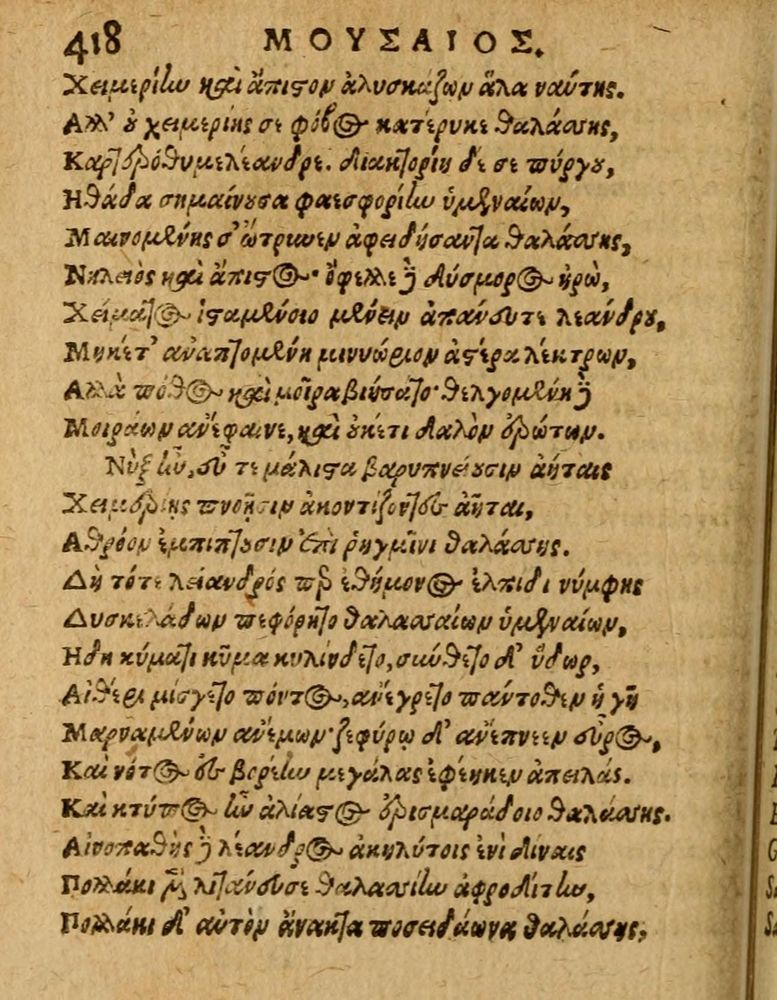 418 ΜΟΥΣΑΙΟΣ.
Χειμερίην καὶ ἄπιστον ἀλυσκάζων ἅλα ναύτης.
Αλλ' ȣ χειμερίης σε φόβος κατέρυκε θαλάσσης,
Καρτερόθυμε λέανδρε. διακτορίη δέ σε πύργȣ,
Ηθάδα σημαίνȣσα φαεσφορίην ὑμεναίων,
Μαινομένης σ' ὤτρυνεν ἀφειδήσαντα θαλάσσης,
Νηλειὸς καὶ ἄπιστος· ὄφελλε δὲ δύσμορος ἡρὼ,
Χείματος ἱσταμένοιο μένειν ἀπάνευθε λεάνδρȣ,
Μηκέτ' ἀναπτομένη μινυώριον ἀστέρα λέκτρων,
Αλλὰ πόθος καὶ μοῖρα βιήσατο· θελγομένη δὲ
Μοιράων ἀνέφαινε, καὶ ȣκέτι δαλὸν ἐρώτων.
Νὺξ ἦν, εὖ τε μάλιστα βαρυπνείȣσιν ἀήταις
Χειμερίης πνοῇσιν ἀκοντίζοντες ἀῆται,
Αθρόον ἐμπίπτȣσιν ἐπὶ ῥηγμῖνι θαλάσσης.
Δὴ τότε λείανδρός περ ἐθήμονος ἐλπίδι νύμφης
Δυσκελάδων πεφόρητο θαλασσαίων ὑμεναίων,
Ηδη κύματι κῦμα κυλίνδετο, σύνθετο δ' ὕδωρ,
Αἰθέρι μίσγετο πόντος, ἀνέγρετο πάντοθεν ἡ γῆ
Μαρναμένων ἀνέμων· ζεφύρῳ δ' ἀνέπνεεν εὖρος,
Καὶ νότος ἐς βορέην μεγάλας ἐφέηκεν ἀπειλάς.
Καὶ κτύπος ἦν ἀλίαστος ἐρισμαράδοιο θαλάσσης.
Αἰνοπαθὴς δὲ λέανδρος ἀκηλύτοις ἐνὶ δίναις
Πολλάκι μὲν λιτάνευσε θαλασσίην ἀφροδίτην,
Πολλάκι δ' αὐτὸν ἄνακτα ποσειδάωνα θαλάσσης,